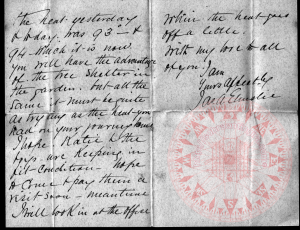 The heat yesterday
& today was 93° &
94. Which it is now
you will have the advantage
of the tree shelter in
the garden. but all the
same it must be quite
as trying as the heat you
had on your journey home
I hope Katie & the
boys are keeping in
fit condition. I hope
to come & pay them a
visit soon – meantime
I will look in at the office
When the heat goes
off a little.
With my love to all
of you. I am
Yours affectly